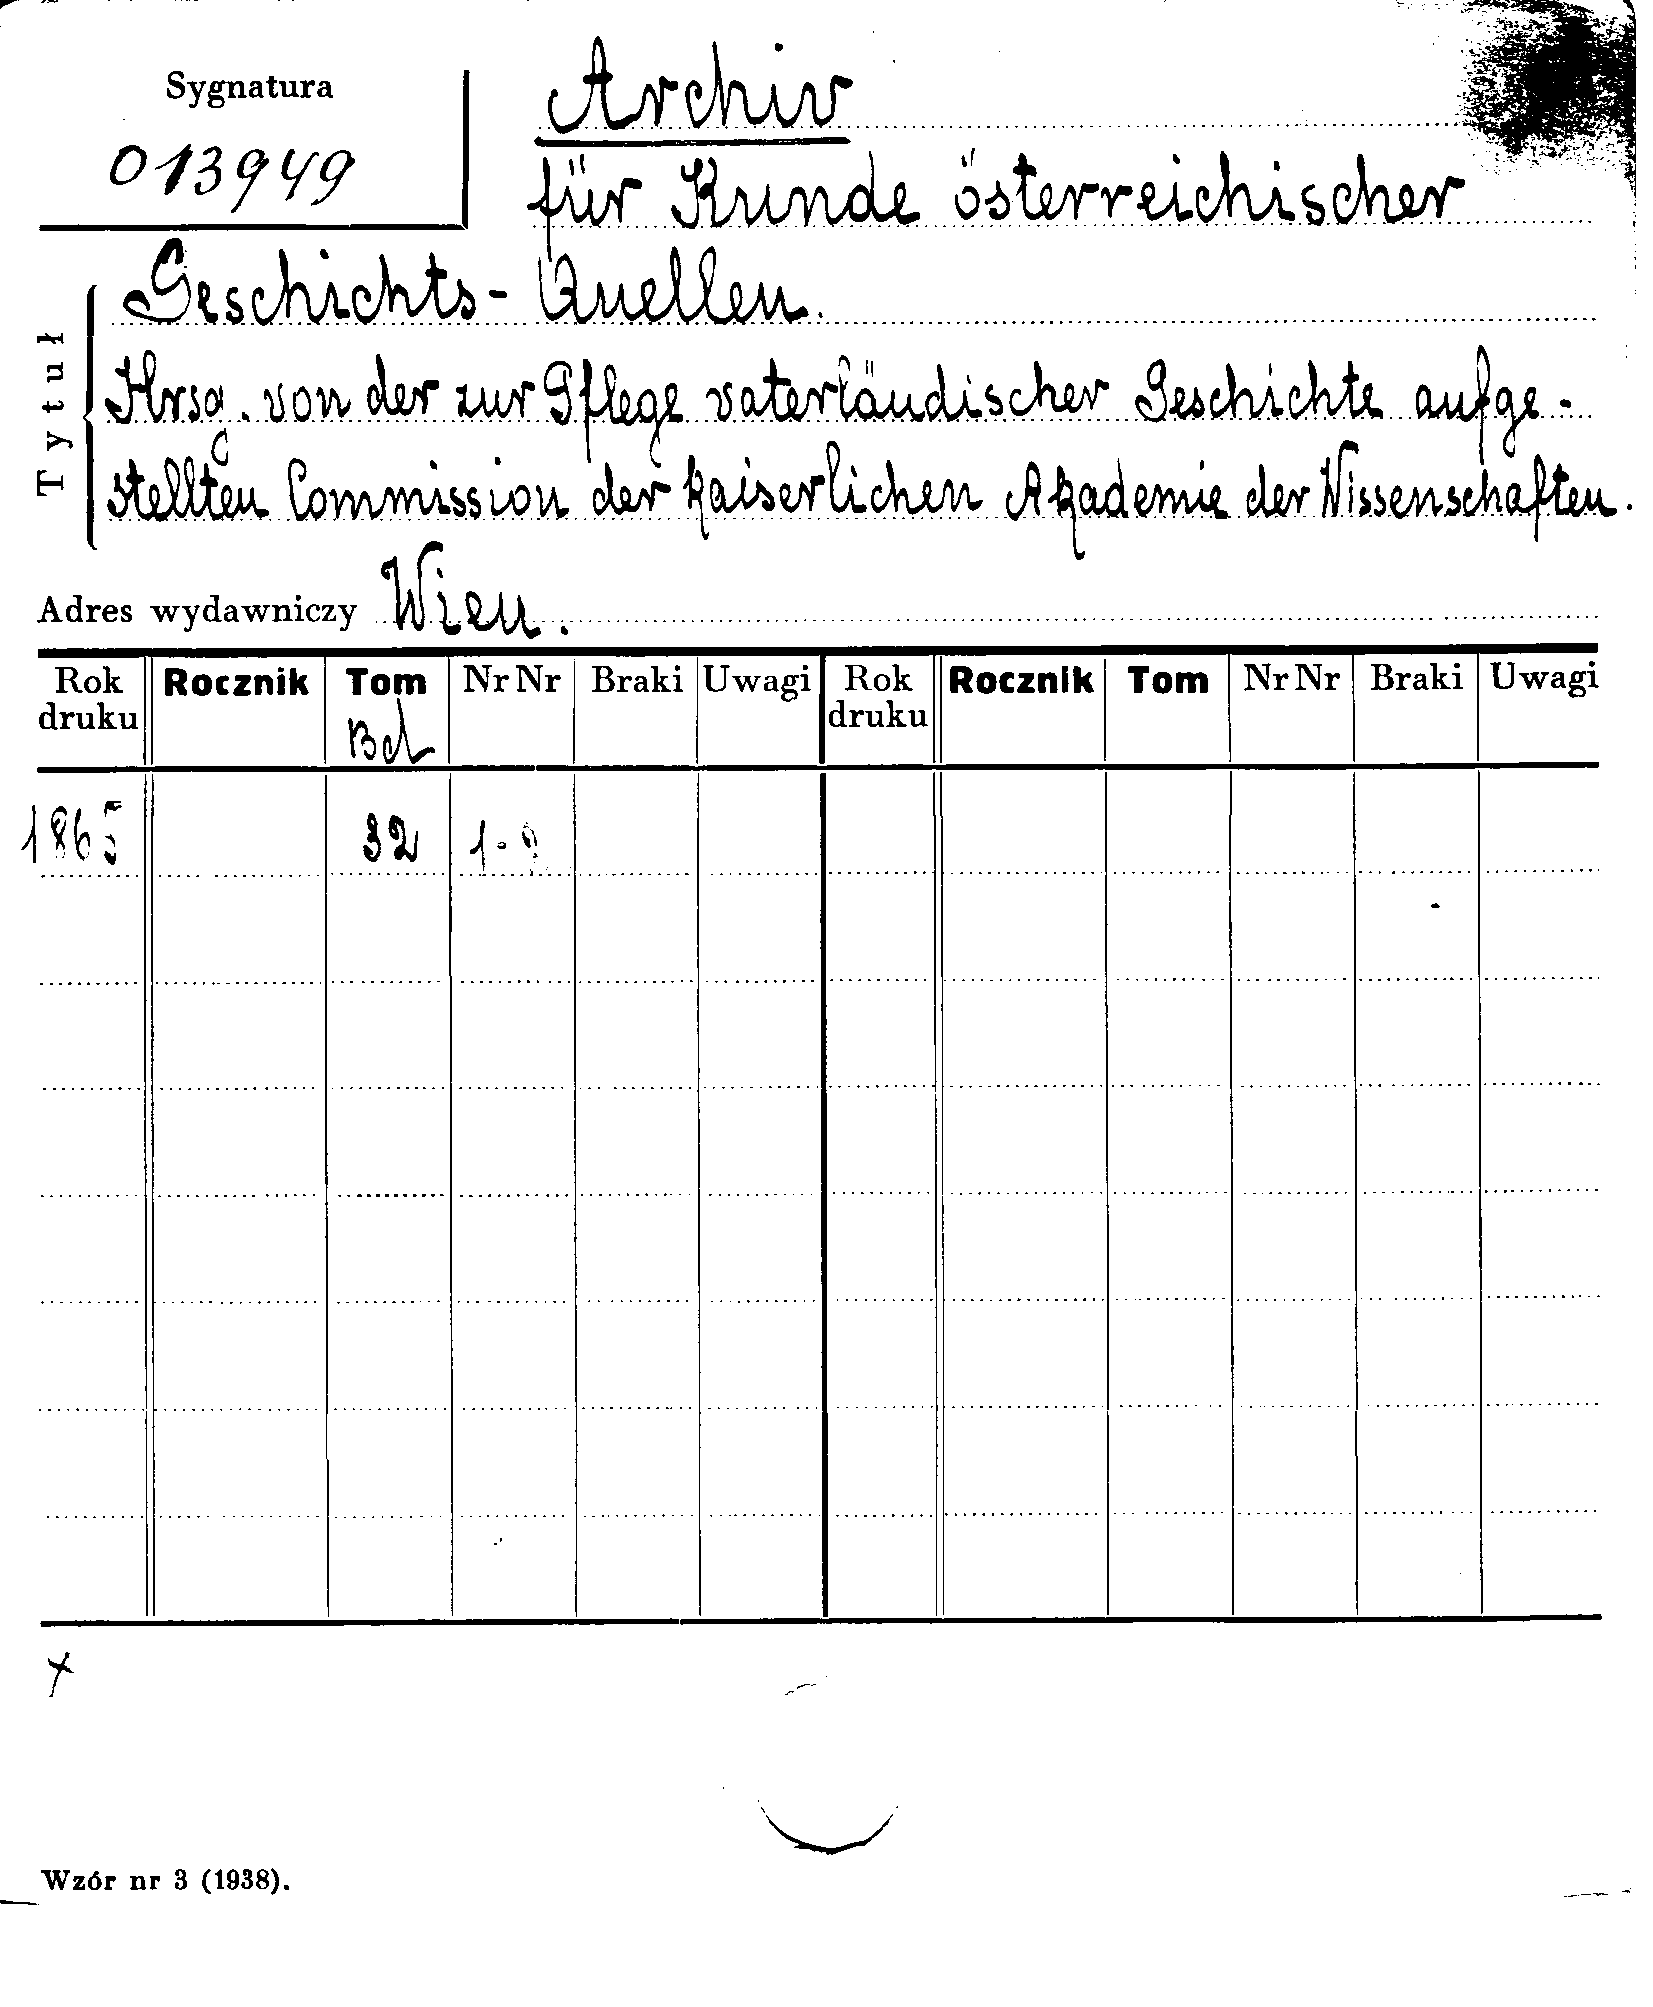 Sygnatura
013949
Archiv
für Kunde österreichischer
Geschichts-Quellen.
Tytuł
Hrsg. von der zur Pflege vaterländischer Geschichte aufge-
stellten Commission der kaiserlichen Akademie der Wissenschaften.
Adres wydawniczy Wien.
Rok druku Rocznik Tom Nr Nr Braki Uwagi Rok druku Rocznik Tom Nr Nr Braki Uwagi
Bd
1865 32 1-2
Wzór nr 3 (1938).